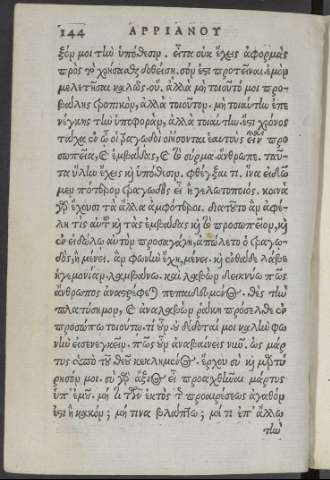 144 ΑΡΡΙΑΝΟΥ
ξόμ μοι τὴν ὑπόθεσιμ. εἶτα οὐκ ἔχεις ἀφορμὰς
πρὸς τὸ χρήσασθαι δοθείσῃ. σόμ ἐστι προτεῖναι ἐμὸμ
μελετῆσαι καλῶς. οὔ. ἀλλὰ μὴ τοιοῦτό μοι προ-
βάλῃς τροπικὸμ, ἀλλὰ τοιοῦτομ. μὴ τοιαύτην ἐπε
νέγκῃς τὴν ὑποφορὰμ, ἀλλὰ τοιαύτην. ἔσται χρόνος
τάχα ἐν ᾧ οἱ τραγῳδοὶ οἰήσονται ἑαυτοὺς εἶναι προ
σωπεῖα, καὶ ἐμβάδας, καὶ τὸ σύρμα. ἄνθρωπε. ταῦ-
τα ὕλην ἔχεις καὶ ὑπόθεσιμ. φθέγξαι τι. ἵνα εἰδῶ
μεμ πότερομ τραγῳδὸς εἶ ἢ γελωτοποιός. κοινὰ
γὰρ ἔχουσι τὰ ἄλλα ἀμφότεροι. διὰ τοῦτο ἂμ ἀφέ-
λῃ τὶς αὐτοῦ καὶ τὰς ἐμβάδας καὶ τὸ προσωπεῖομ, καὶ
ἐν εἰδώλῳ αὐτὸμ προσαγάγῃ, ἀπώλετο ὁ τραγῳ-
δὸς, ἢ μένει. ἂμ φωνὴν ἔχῃ, μένει. καὶ ἐνθάδε λάβε
ἡγεμονίαμ. λαμβάνω. καὶ λαβὼμ δεικνύω πῶς
ἄνθρωπος ἀναστρέφεται πεπαιδευμένος. θὲς τὴν
πλατύσημομ, καὶ ἀναλαβὼμ ῥάκη πρόσελθε ἐν
προσώπῳ τοιούτῳ. τί οὖν οὐ δίδοταί μοι καλὴν φω
νὴν εἰσενεγκεῖμ. πῶς οὖν ἀναβαίνεις νῦν. ὡς μάρ-
τυς ὑπὸ τοῦ θεοῦ κεκλημένος. ἔρχου σὺ καὶ μαρτύ
ρησόμ μοι. σὺ γὰρ ἄξιος εἶ προαχθῆναι μάρτυς
ὑπ' ἐμοῦ. μή τι τῶν ἐκτὸς τῆς προαιρέσεως ἀγαθόμ
ἐστι ἢ κακόμ; μή τινα βλάπτω; μή τι ἐπ' ἄλλῳ
τὴν